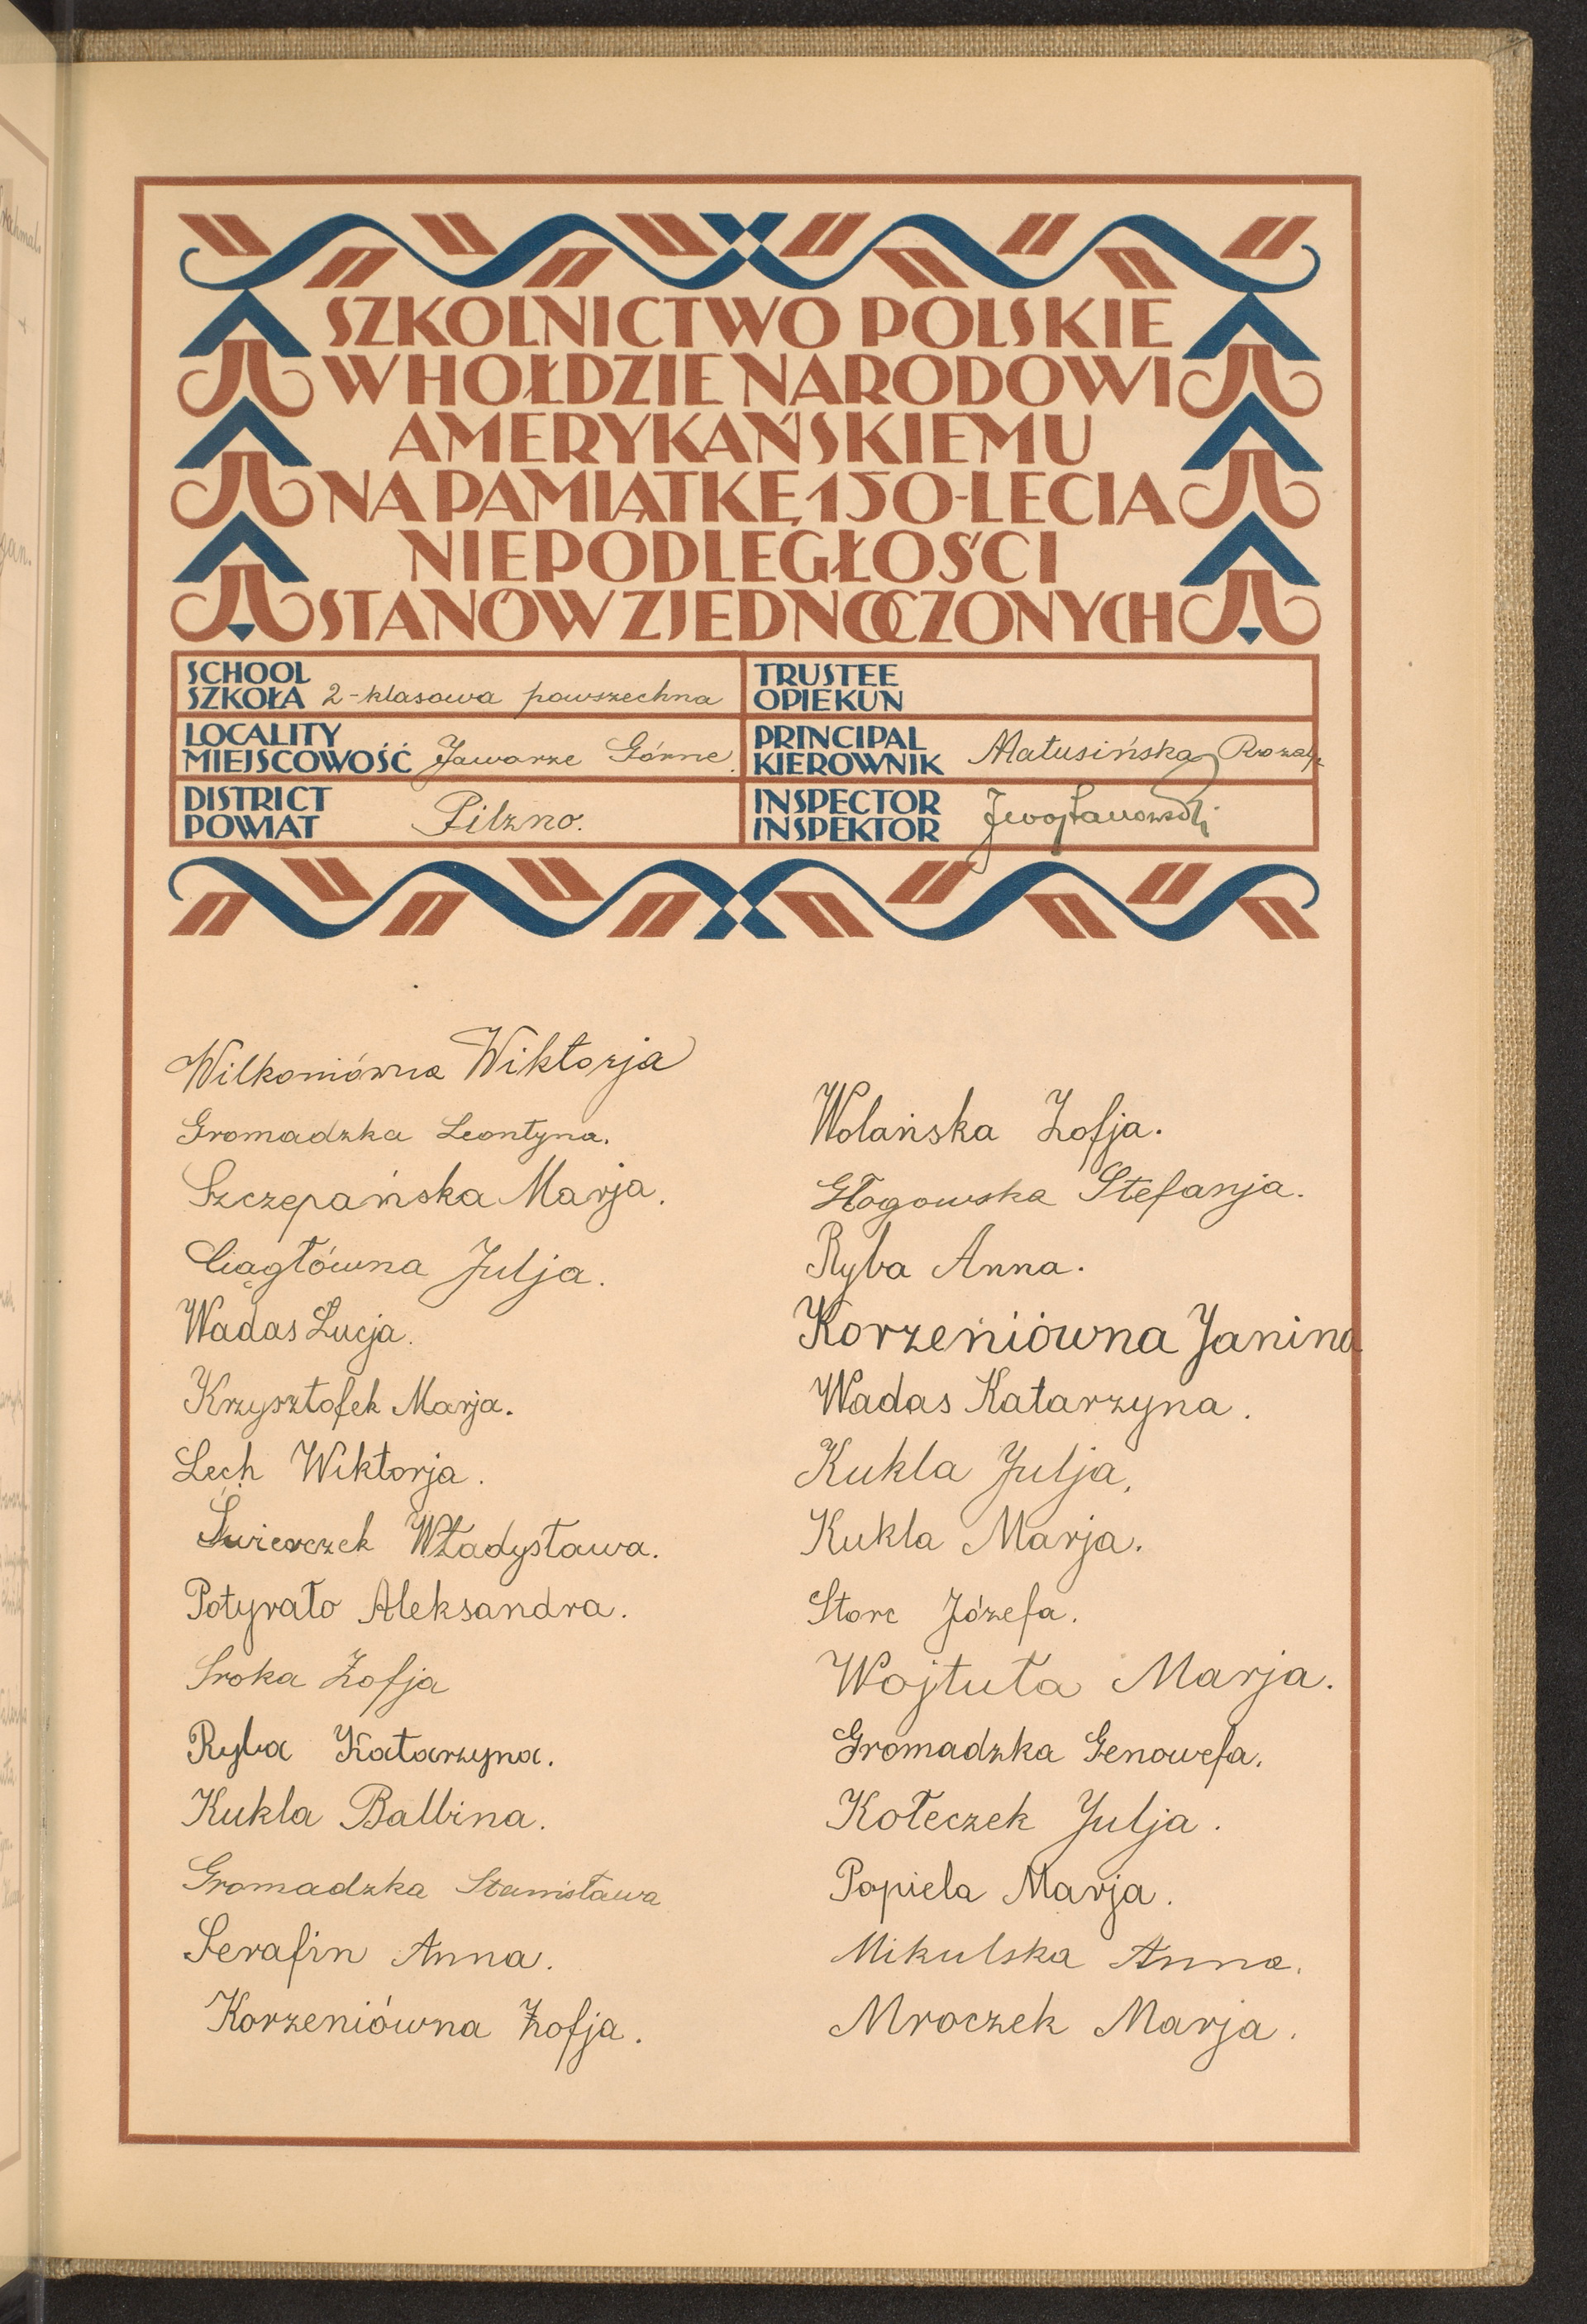 SZKOLNICTWO POLSKIE
W HOŁDZIE NARODOWI
AMERYKAŃSKIEMU
NA PAMIĄTKĘ 150-LECIA
NIEPODLEGŁOŚCI
STANÓW ZJEDNOCZONYCH
SCHOOL
SZKOŁA 2-klasowa powszechna
TRUSTEE
OPIEKUN
LOCALITY
MIEJSCOWOŚĆ Jaworze Górne.
PRINCIPAL
KIEROWNIK Matusińska
DISTRICT
POWIAT Pilzno.
INSPECTOR
INSPEKTOR
Wilkoniówna Wiktorja
Gromadzka Leontyna.
Szczepańska Marja.
Ciągłówna Julja.
Wadas Łucja.
Krzysztofek Marja.
Lech Wiktorja.
Świerczek Władysława.
Potyrało Aleksandra.
Sroka Zofja
Ryba Katarzyna.
Kukla Balbina.
Gromadzka Stanisława
Serafin Anna.
Korzeniówna Zofja.
Wolańska Zofja.
Głogowska Stefanja.
Ryba Anna.
Korzeniówna Janina
Wadas Katarzyna.
Kukla Julja,
Kukla Marja.
Storc Józefa.
Wojtuła Marja.
Gromadzka Genowefa.
Kołeczek Julja.
Popiela Marja.
Mikulska Anna.
Mroczek Marja.